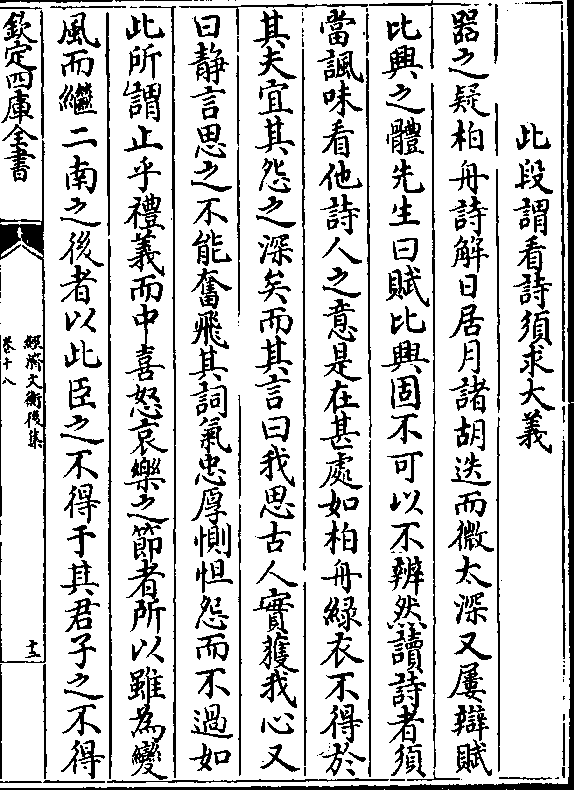 此段謂看詩須求大義
器之疑柏舟詩解日居月諸胡迭而微太深又屢辯賦
比興之體先生曰賦比興固不可以不辨然讀詩者須
當諷味看他詩人之意是在甚處如柏舟綠衣不得於
其夫宜其怨之深矣而其言曰我思古人實獲我心又
曰靜言思之不能奮飛其詞氣忠厚惻怛怨而不過如
此所謂止乎禮義而中喜怒哀樂之節者所以雖為變
風而繼二南之後者以此臣之不得于其君子之不得
欽定四庫全書
經濟文衡後集
卷十八
十三